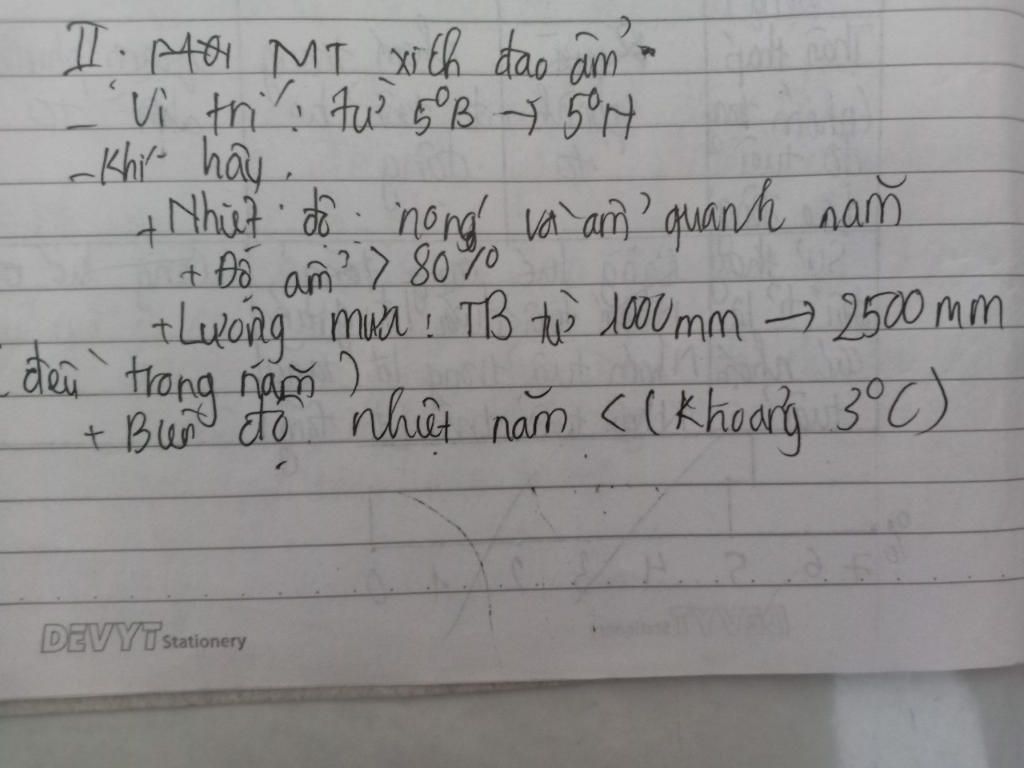 II. MT xích đạo ẩm
- Vị trí: từ 5°B → 5°N
- Khí hậy.
+ Nhiệt độ: nóng và ẩm quanh năm
+ Độ ẩm > 80%
+ Lượng mưa: TB từ 1000mm → 2500mm
đều trong năm)
+ Biên độ nhiệt năm < (Khoảng 3°C)
DEVYT Stationery